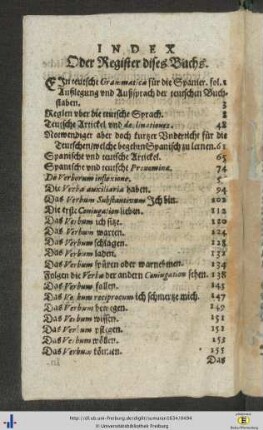 INDEX
Oder Register dises Buchs.
EIn teutsche Grammatica für die Spanier. fol. 1
Außlegung vnd Außsprach der teutschen Buch-
staben. 3
Reglen vber die teutsche Sprach. 8
Teutsche Artickel vnd declinationes. 48
Notwendiger aber doch kurtzer Vnderricht für die
Teutschen/welche begehrn Spanisch zu lernen. 61
Spanische vnd teutsche Artickel. 65
Spanische vnd teutsche Pronomina. 74
De Verborum inflexione.
Die Verba auxiliaria haben. 94
Das Verbum Substantivum Ich bin. 102
Die erste Coniugation lieben. 112
Das Verbum ich sitze. 120
Das Verbum warten. 124
Das Verbum schlagen. 128
Das Verbum laden. 131
Das Verbum spüren oder warnehmen. 134
Folgen die Verba der andern Coniugation sehen. 138
Das Verbum sollen. 145
Das Verbum reciprocum ich schmertze mich. 147
Das Verbum 149
Das Verbum wissen. 151
Das Verbum 151
Das Verbum wöllen. 153
Das Verbum können. 155
Das
http://dl.ub.uni-freiburg.de/diglit/
© Universitätsbibliothek Freiburg